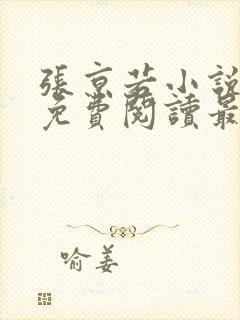 張京若小說
免費閱讀最
喻姜